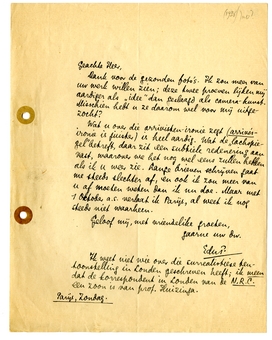 Geachte Heer,
Dank voor de gezonden foto's. Ik zou meer van
uw werk willen zien; deze twee proeven lijken mij
aardiger als "idee" dan geslaagd als camera-kunst.
Misschien hebt u ze daarom wel voor mij uitge-
zocht?
Wat u over die arrivisten-ironie zegt (arrivis-
ironie is juister) is heel aardig. Wat de
betreft, daar zit een subtiele redenering aan
vast, waarover we het nog wel eens zullen hebben
als ik u weer zie. Lange brieven schrijven gaat
me steeds slechter af, en ook ik zou meer van
u af moeten weten dan ik nu doe. Maar met
1 October a.s. verlaat ik Parijs, al weet ik nog
steeds niet waarheen.
Geloof mij, met vriendelijke groeten,
gaarne uw dw.
EduP.
Ik weet niet wie over die surrealistische ten-
toonstelling in Londen geschreven heeft; ik meen
dat de correspondent in Londen van de N.R.C.
een zoon is van prof. Huizinga.
Parijs, Zondag.